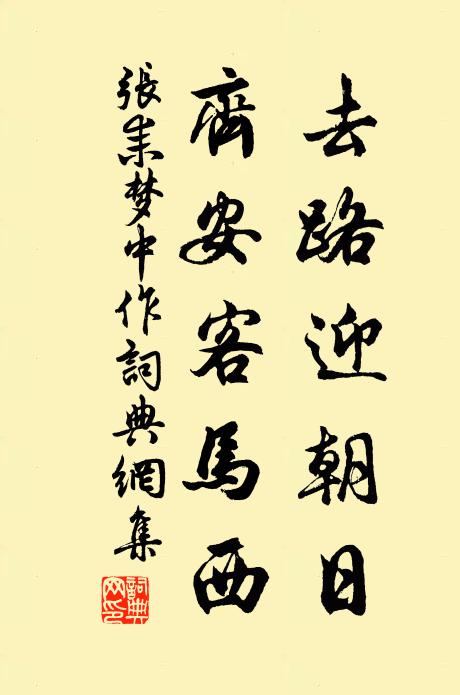 去路迎朝日
齊安客馬西
張耒梦中作詞典網集
詞典網印